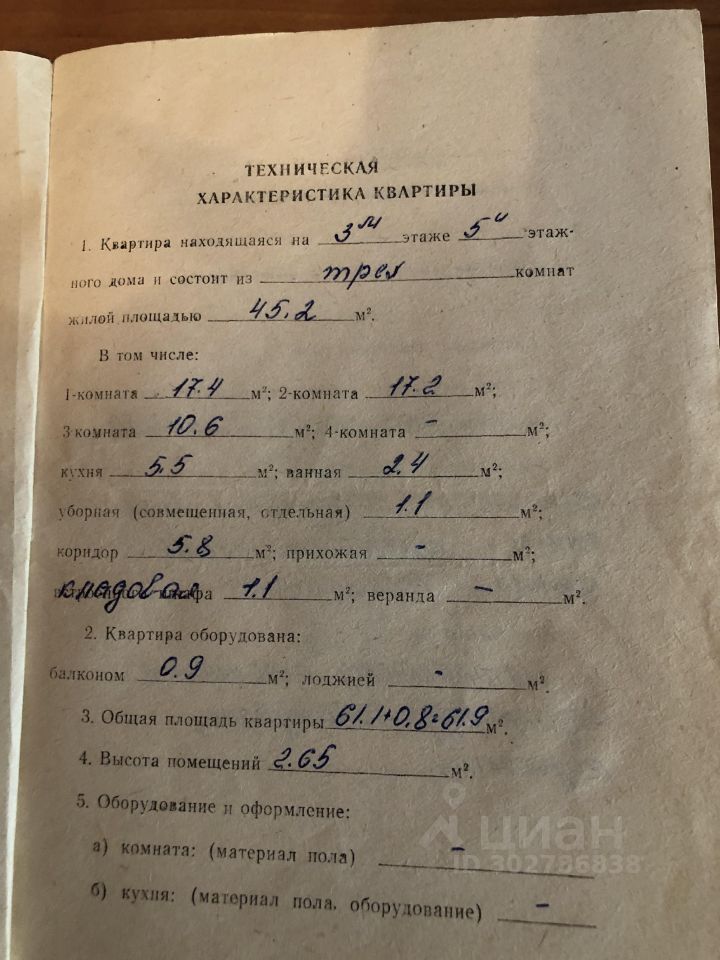 ТЕХНИЧЕСКАЯ
ХАРАКТЕРИСТИКА КВАРТИРЫ
1. Квартира находящаяся на 3м этаже 5и этаж-
ного дома и состоит из трех комнат
жилой площадью 45.2 м².
В том числе:
1-комната 17.4 м²; 2-комната 17.2 м²;
3 комната 10.6 м²; 4-комната - м²;
кухня 5.5 м²; ванная 2.4 м²;
уборная (совмещенная, отдельная) 1.1 м²;
коридор 5.8 м²; прихожая - м²;
кладовая шкафа 1.1 м²; веранда - м².
2. Квартира оборудована:
балконом 0.9 м²; лоджией - м².
3. Общая площадь квартиры 61.1+0.8=61.9 м².
4. Высота помещений 2.65 м².
5. Оборудование и оформление:
а) комната: (материал пола) -
б) кухня: (материал пола, оборудование) -
циан
ID 302786838